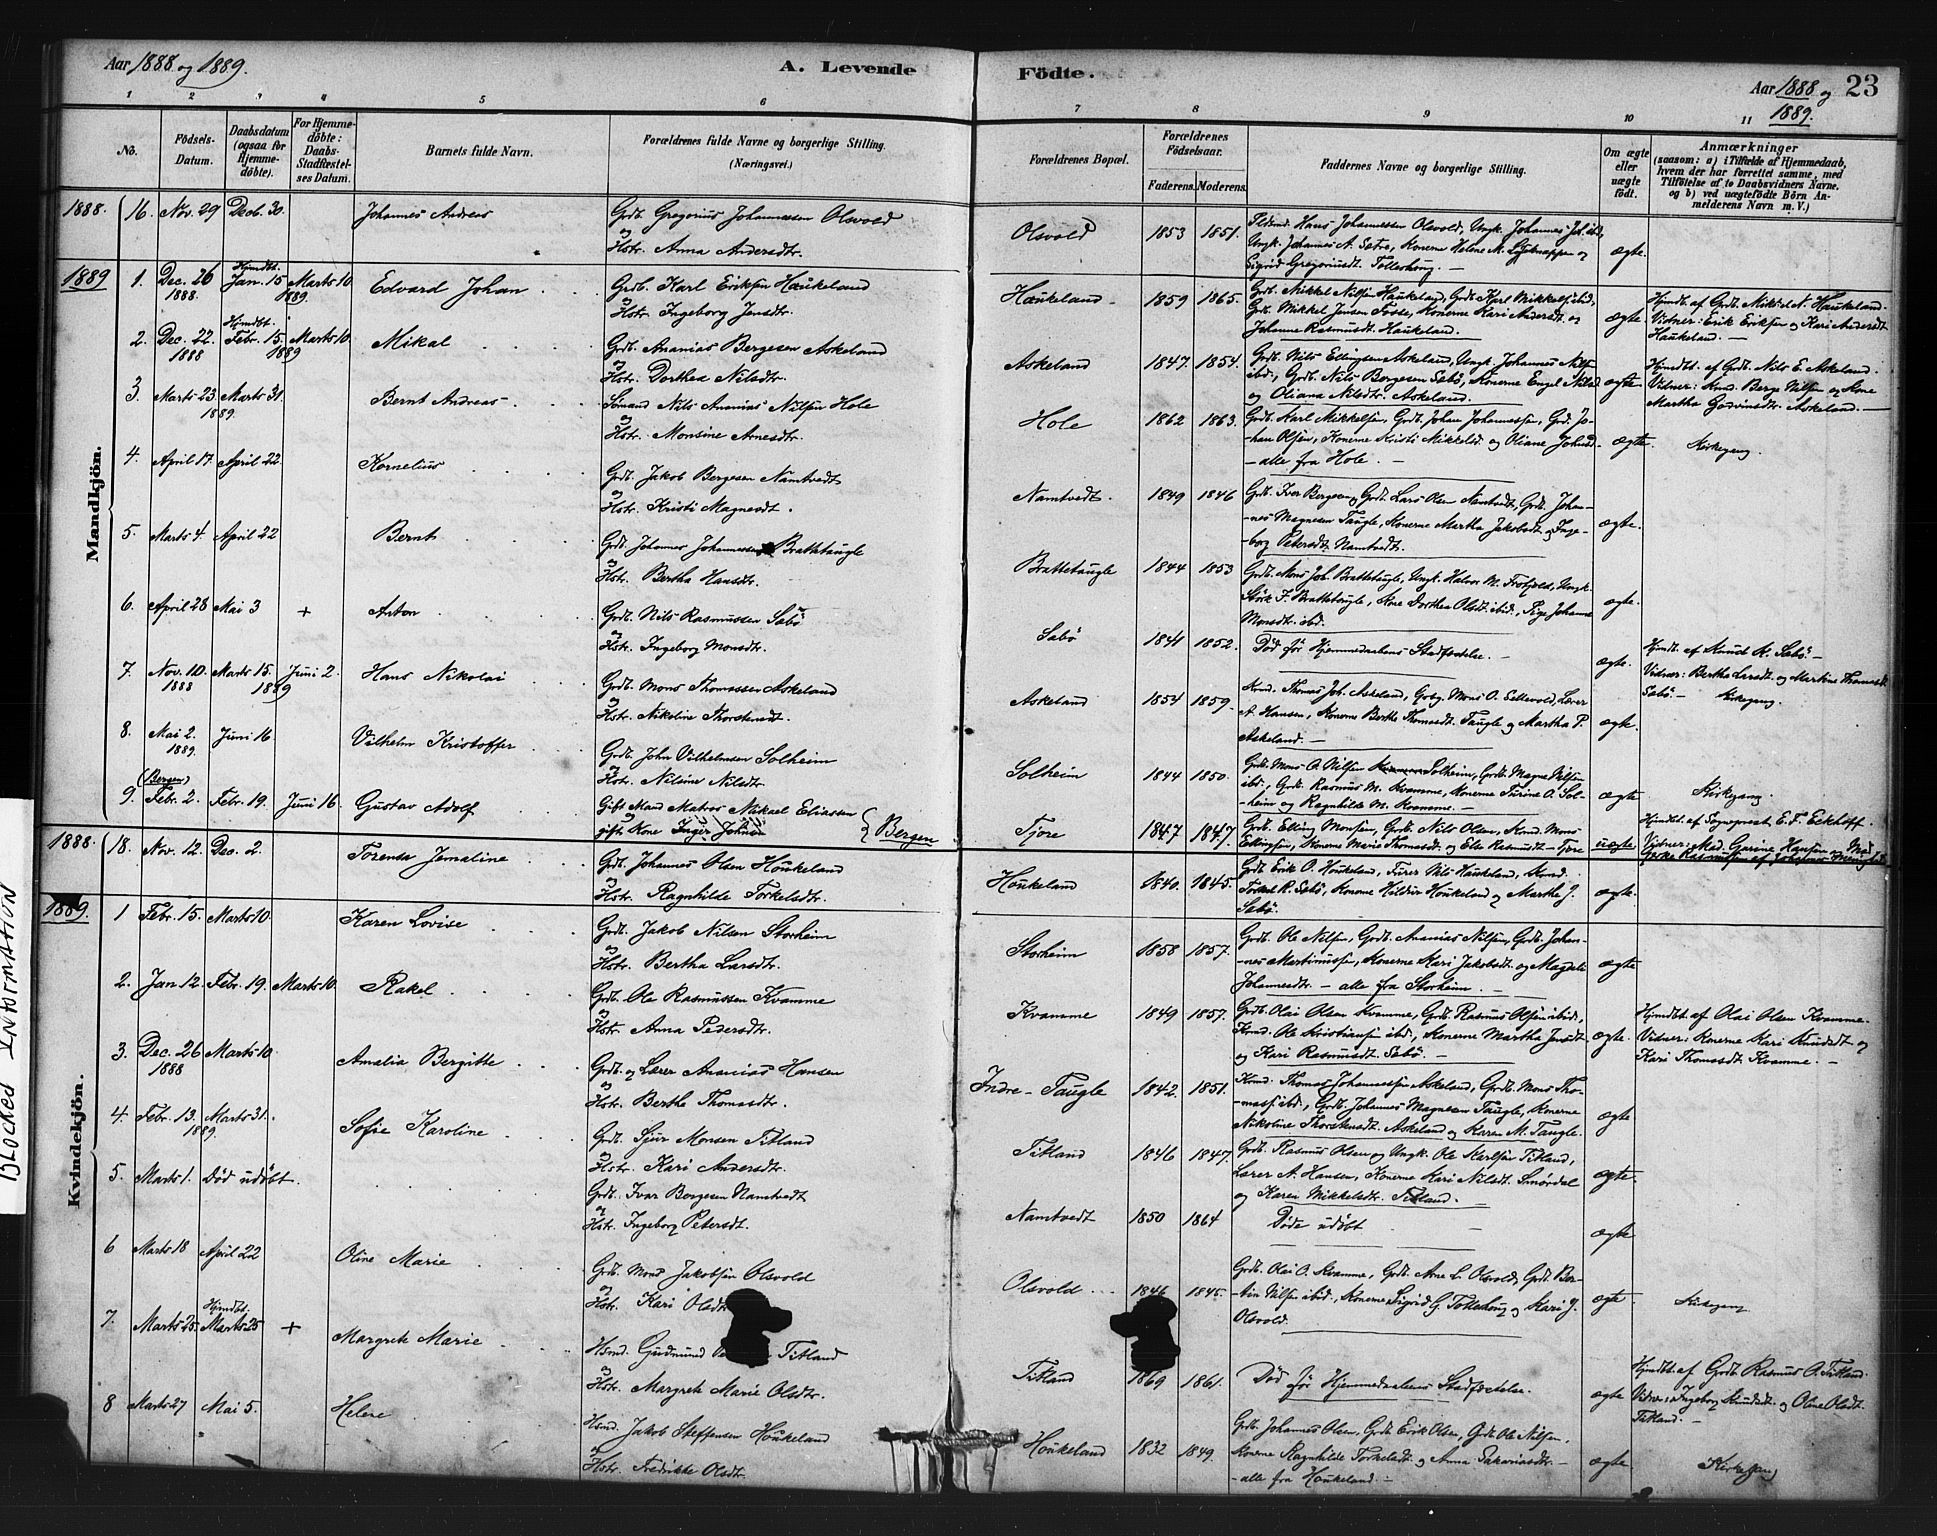 Aar 1888 og 1889.
A. Levende Födte.
Aar 1888 og 1889.
23
1 2 3 4 5 6 7 8 9 10 11
No.
Födsels-Datum.
Daabsdatum (ogsaa for Hjemmedöbte).
For Hjemmedöbte: Daabs-Stadfæstelses Datum.
Barnets fulde Navn.
Forældrenes fulde Navne og borgerlige Stilling. (Næringsvei.)
Forældrenes Bopæl.
Forældrenes Födselsaar.
Faderens. Moderens.
Faddernes Navne og borgerlige Stilling.
Om ægte eller uægte födt.
Anmærkninger
(saasom: a) i Tilfælde af Hjemmedaab, hvem der har forrettet samme, med Tilföielse af to Daabsvidners Navne, og b) ved uægtefödte Börn Anmelderens Navn m. V.)
Mandkjön.
1888. 16. Nov. 29 Decb. 30. Johannes Andreas
Grdb. Gregorius Johannessen Olsvold
og Hstr. Anna Andersdtr.
Olsvold 1853 1851.
Hans Johannessen Olsvold, Ungk. Johannes Joh. ibid,
Ungk. Johannes A. Sætre, Konerne Helene M. og
Sigrid Gregoriusdt. Totteskog. —
ægte.
1889 1. Dec. 26 1888. Hjmdbt. Jan. 15 1889. Marts 10 Edvard Johan
Grdb. Karl Eriksen Haukeland
og Hstr. Ingeborg Jensdtr.
Haukeland 1859 1865.
Grdb. Mikkel Nilsen Haukeland, Grdb. Karl Mikkelsen ibid,
Grdb. Mikkel Jensen Fosse, Konerne Kari Andersdt. og
Johanne Rasmusdt. Haukeland.
ægte
Hjmdbt. af Grdb. Mikkel N. Haukeland.
Vidner: Erik Eriksen og Kari Andersdt.
Haukeland. —
2. Dec. 22. 1888 Hjmdbt. Febr. 15. 1889 Marts 10 Mikal
Grdb. Ananias Bergesen Askeland
og Hstr. Dorthea Nilsdtr.
Askeland 1847. 1854.
Grdb. Nils Ellingsen Askeland, Ungk. Johannes Nilsen
ibid., Grdb. Nils Borgesen Sæbö, Konerne Engel Nilsd.
og Oliana Nilsdtr. Askeland.
ægte
Hjmdbt. af Grdb. Nils E. Askeland.
Vidner: Kmd. Berge Nilsen og Kone
Martha Askeland. —
3. Marts 23. 1889. Marts 31. Bernt Andreas
Sömand Nils Ananias Nilsen Hole
og Hstr. Monsine Arnesdtr.
Hole 1862 1863.
Grdb. Karl Mikkelsen, Grdb. Johan Johannessen, Grd. Johan
Olsen, Konerne Kristi Mikkelsd. og Oliane Johnsd.
— alle fra Hole. —
ægte.
Kirkegang.
4. April 17. April 22. Kornelius
Grdb. Jakob Bergesen Namtvedt
og Hstr. Kristi Magnesdt.
Namtvedt. 1849 1846
Grdb. Iver Bergesen og Grdb. Lars Olsen Namtvedt, Grdb. Johannes
Magnesen Taugle, Konerne Martha Jakobsdt. og Ingeborg
Petersdt. Namtvedt.
ægte.
5. Marts 4. April 22 Bernt
Grdb. Johannes Johannessen Brattetaugle
og Hstr. Bertha Hansdtr.
Brattetaugle 1844 1853
Grdb. Mons Joh. Brattetaugle, Ungk. Halvor M. Ungk.
F. Brattetaugle, Kone Dorthea Olsdt. ibid., Pige Johanne
Monsdtr. ibid.
ægte.
6. April 28 Mai 3 + Anton
Grdb. Nils Rasmussen Sæbö
og Hstr. Ingeborg Monsdtr.
Sæbö 1841 1852.
Död för Hjemmedaabens Stadfæstelse. —
ægte.
Hjmdt. af Knud K. Sæbö. —
Vidner: Bertha Larsdt. og Martine Thomasdt.
Sæbö. — Kirkegang.
7. Nov. 10. 1888 Marts 15. 1889 Juni 2. Hans Nikolai
Grdb. Mons Thomassen Askeland
og Hstr. Nikoline Thorstensdt.
Askeland 1854 1859.
Kmd. Thomas Joh. Askeland, Mons O. Lærer
A. Hansen, Konerne Berthe Thomasdt. Taugle og Martha P.
Askeland. —
ægte.
8. Mai 2. 1889. Juni 16 Vilhelm Kristoffer
Grdb. John Vilhelmsen Solheim
og Hstr. Nilsine Nilsdt.
Solheim 1844 1850.
Grdb. Mons O. Nilsen Solheim, Grdb. Magne Nilsen
ibid., Grdb. Rasmus M. Kvamme, Konerne Turine O. Solheim
og Ragnhilde M. Kvamme. —
ægte
Kirkegang.
9. (Bergen) Febr. 2. Febr. 19. Juni 16 Gustav Adolf
Gift Mand Matros Mikael Eliassen
og gift Kone Inger Johnsen } Bergen
Tjore 1847 1847.
Grdb. Elling Monsen, Grdb. Nils Olsen, Kmd. Mons
Ellingsen, Konerne Marie Thomasdt. og Else Rasmusdt. Tjore
uægte
Hjmdbt. af Sogneprest E. F. Eckhoff.
Vidner: Mad. Garine Hansen og Mad.
Kvindekjön.
1888. 18. Nov. 12. Dec. 2. Torensa Jemaline
Grdb. Johannes Olsen Haukeland
og Hstr. Ragnhilde Torkelsdtr.
Haukeland 1840. 1845.
Grdb. Erik O. Haukeland, Furer Nils Haukeland, Kmd.
Torkel K. Sæbö, Konerne Hildur Haukeland og Marthe J.
Sæbö.
ægte.
1889. 1 Febr. 15. Marts 10. Karen Lovise
Grdb. Jakob Nilsen Storheim
og Hstr. Bertha Larsdtr.
Storheim 1858 1857.
Grdb. Ole Nilsen, Grdb. Ananias Nilsen, Grdb. Johannes
Martinussen, Konerne Kari Jakobsdt. og Magdeli
Johannesdtr. — alle fra Storheim. —
ægte
2. Jan 12. Febr. 19. Marts 10 Rakel
Grdb. Ole Rasmussen Kvamme
og Hstr. Anna Pedersdtr.
Kvamme 1849 1857.
Grdb. Olai Olsen Kvamme, Grdb. Rasmus Olsen ibid,
Kmd. Ole Kristiansen ibid, Konerne Martha Jensdt.
og Kari Rasmusdt. Sæbö. —
ægte.
Hjmdbt. af Olai Olsen Kvamme.
Vidner: Konerne Kari Knudsdt. og
Kari Thomasdt. Kvamme. —
3. Dec. 26 1888 Marts 10 Amalia Bergitte
Grdb. og Lærer Ananias Hansen
og Hstr. Berthe Thomasdtr.
Indre-Taugle 1842. 1851.
Kmd. Thomas Johannessen Askeland, Grdb. Mons Thomassen
ibid., Grdb. Johannes Magnesen Taugle, Konerne
Nikoline Thorstensdt. Askeland og Karen M. Taugle.
ægte
4. Febr. 13. Marts 31. 1889. Sofie Karoline
Grdb. Sjur Monsen Titland
og Hstr. Kari Andersdtr.
Titland 1846 1847.
Grdb. Rasmus Olsen og Ungk. Ole Karlsen Titland,
Lærer A. Hansen, Konerne Kari Nilsdt. Smördal
og Karen Mikkelsdtr. Titland. —
ægte.
5. Marts 1. Död udöbt.
Grdb. Ivar Borgesen Namtvedt
og Hstr. Ingeborg Petersdt.
Namtvedt 1850 1864
Döde udöbt
ægte
6 Marts 18 April 22 Oline Marie
Grdb. Mons Jakobsen Olsvold
og Hstr. Kari Olsdtr
Olsvold 1846 1845.
Grdb. Olai O. Kvamme, Grdb. Arne L. Olsvold, Grdb.
Nilsen ibid., Konerne Sigrid G. Totteskog og Kari J.
Olsvold.
ægte.
Kirkegang
7. Marts 25. Hjmdbt. Marts 25 + Margrete Marie
Hsmd. Gudmund Titland
og Hstr. Margrete Marie Olsdtr.
Titland 1869 1861.
Död för Hjemmedaabens Stadfæstelse.
ægte
Hjmdbt. af Grdb. Rasmus O. Titland.
Vidner: Ingeborg Knudsdt. og Oline Olsdt.
Titland. —
8 Marts 27 Mai 5. Helene
Hsmd. Jakob Steffensen Haukeland
og Hstr. Fredrikke Olsdt.
Haukeland 1832 1849.
Grdb. Johannes Olsen, Grdb. Erik Olsen, Grdb. Ole Nilsen,
Konerne Ragnhilde Torkelsdt. og Anna Sakariasdtr. —
— alle fra Haukeland. —
ægte
Kirkegang
BLOCKED INFORMATION